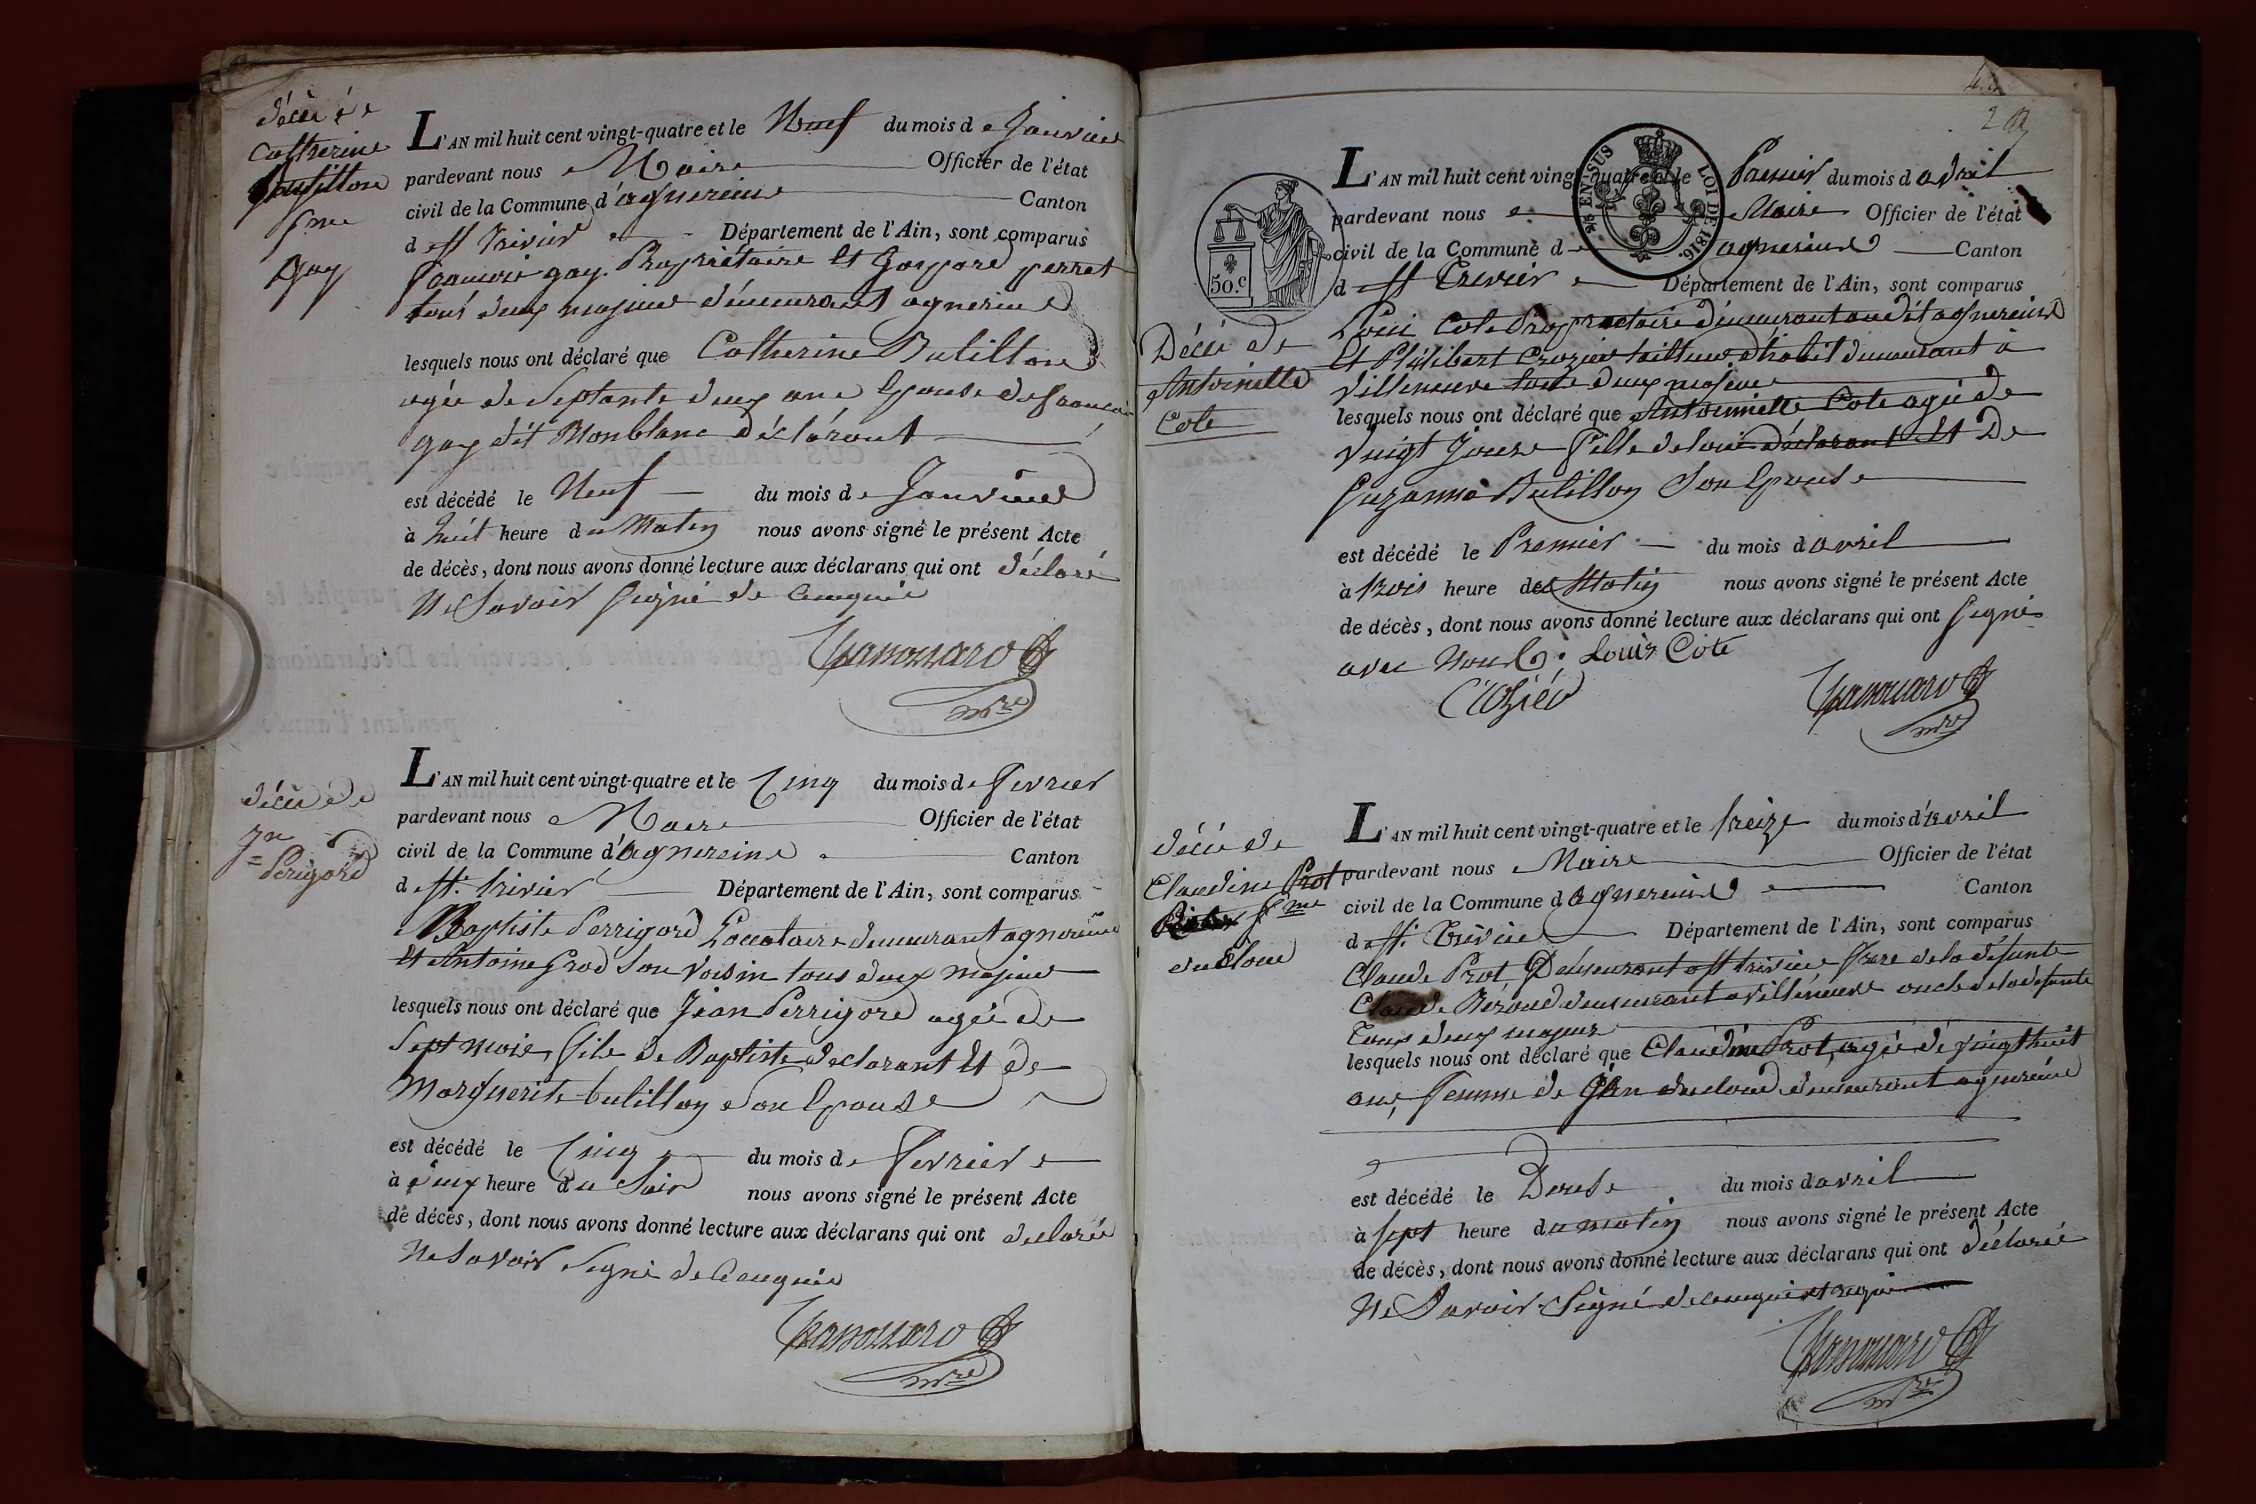 décès de
Catherine
Butillon
fme
Gay
L'AN mil huit cent vingt-quatre et le Neuf du mois de Janvier
pardevant nous Maire Officier de l'état
civil de la Commune d'agnereins Canton
de St trivier Département de l'Ain, sont comparus
francois gay Propriétaire Et Gaspard perret
tous deux majeur démeurant agnereins
lesquels nous ont déclaré que Catherine Butillon
agée de Septante deux ans Epouse de francois
gay dit Monblanc déclarant
est décédé le Neuf du mois de Janvier
à huit heure du Matin nous avons signé le présent Acte
de décès, dont nous avons donné lecture aux déclarans qui ont déclaré
Ne Savoir Signé de Cenquis
mre
décès de
Jn
Perigord
L'AN mil huit cent vingt-quatre et le Cinq du mois de fevrier
pardevant nous Maire Officier de l'état
civil de la Commune d'agnereins Canton
de St. trivier Département de l'Ain, sont comparus
Baptiste Perrigord Locataire demeurant agnereins
Et Antoine Grod Son Voisin tous deux majeur
lesquels nous ont déclaré que Jean Perrigord agée de
Sept mois, fils de Baptiste declarant Et de
Marguerite butillon Son Epouse
est décédé le Cinq du mois de fevrier
à deux heure du Soir nous avons signé le présent Acte
de décès, dont nous avons donné lecture aux déclarans qui ont declaré
Ne Savoir Signé de Cenquis
mre
2
L'AN mil huit cent vingt-quatre et le Premier du mois d avril
pardevant nous Maire Officier de l'état
civil de la Commune d agnereins Canton
de St Trivier Département de l'Ain, sont comparus
EN-SUS LOI DE 1816.
50.c
Décès de
Antoinette
Cote
Louis Cote Propriaetaire démeurant audit agnereins
Et Philibert Crozier tailleur d'habit demeurant à
Villeneuve tous deux majeur
lesquels nous ont déclaré que Antoinette Cote agé de
Vingt Jours fille de louis déclarant Et De
Suzanne Butillon Son Epouse
est décédé le Premier du mois d avril
à trois heure du Matin nous avons signé le présent Acte
de décès, dont nous avons donné lecture aux déclarans qui ont signé
avec Nous. Louis Cote
mre
décès de
Claudine Prot
fme
duclous
L'AN mil huit cent vingt-quatre et le treize du mois d'avril
pardevant nous Maire Officier de l'état
civil de la Commune d agnereins Canton
de St. Trivier Département de l'Ain, sont comparus
Claude Prot Demeurant a St trivier frere de la defunte
Claude Beroud demeurant a villeneuve oncle de la defunte
Tous deux majeur
lesquels nous ont déclaré que Claudine Prot, agée de vingt huit
ans, femme de Jean duclous demeurant agnereins
est décédé le Douse du mois d avril
à sept heure du matin nous avons signé le présent Acte
de décès, dont nous avons donné lecture aux déclarans qui ont déclaré
Ne Savoir Signé de cenquis et requis
mre